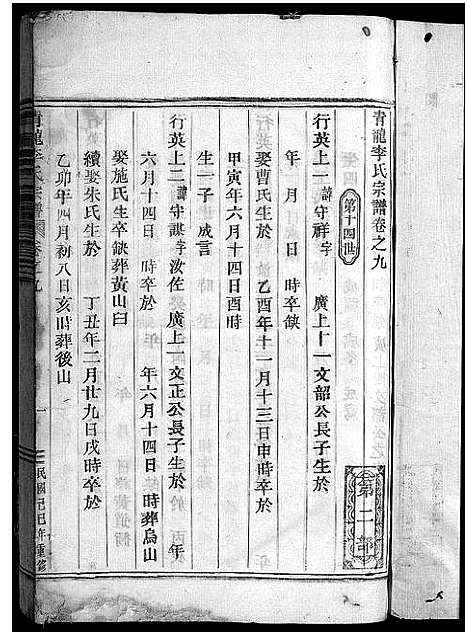 青龍李氏宗譜卷之九
第二部
第十四世
行英上一 諱守祥字 廣上十一文韶公長子生於
年 月 日 時卒缺
娶曹氏生於 乙酉年十一月十三日申時卒於
甲寅年六月十四日酉時
生一子 成言
行英上二 諱守謀字汝佐 廣上一文正公長子生於 年
六月十四日 時卒於 年六月十四日 時葬烏山
娶施氏生卒缺葬黃山臼
續娶朱氏生於 丁丑年二月廿九日戌時卒於
乙卯年四月初八日亥時葬後山
青龍李氏宗譜 卷之九
一
民國己巳年重修